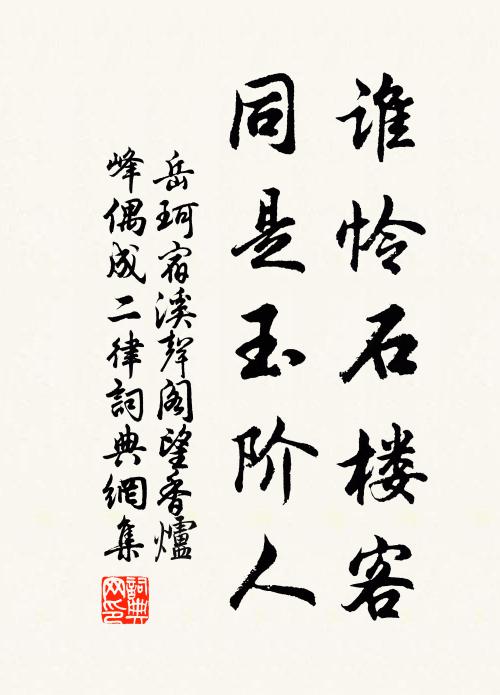 谁怜石楼客
同是玉阶人
岳珂宿溪声阁望香爐
峰偶成二律詞典網集
詞典网印